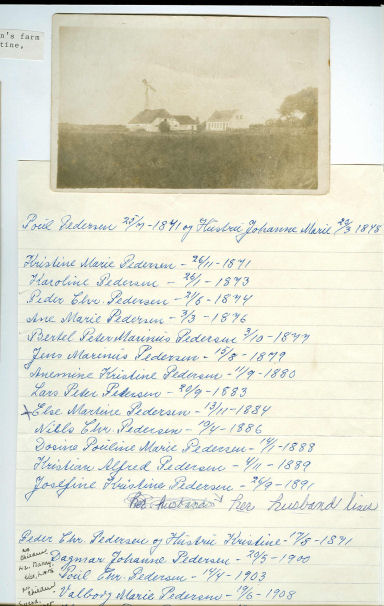 n's farm
tine,
Poul Pedersen 25/7-1841 og Hustru Johanne Marie 3 1848
Kristine Marie Pedersen - 26/11-1871
Karoline Pedersen - 26/1-1873
Peder Chr. Pedersen - 21/5-1874
Ane Marie Pedersen - 3/3-1876
Bertel Peter Mauniis Pedersen 3/10-1877
Jens Marinus Pedersen - 19/8-1879
Anemine Kristine Pedersen - 11/9-1880
Lars Peter Petersen - 20/9-1883
x Else Martine Pedersen - 13/11-1884
Niels Chr. Pedersen - 19/4-1886
Dosine Pouline Marie Pedersen - 14/1-1888
Kristian Alfred Pedersen - 4/11-1889
Josefine Kristine Pedersen - 26/9-1891
her husband
her husband lives
Peder Chr. Pedersen og Hustru Kristine - 17/8-1871
Dagmar Johanne Pedersen - 20/5-1900
Poul Chr. Pedersen - 14/4-1903
Valborg Marie Pedersen - 19/6-1908
no children
no
children